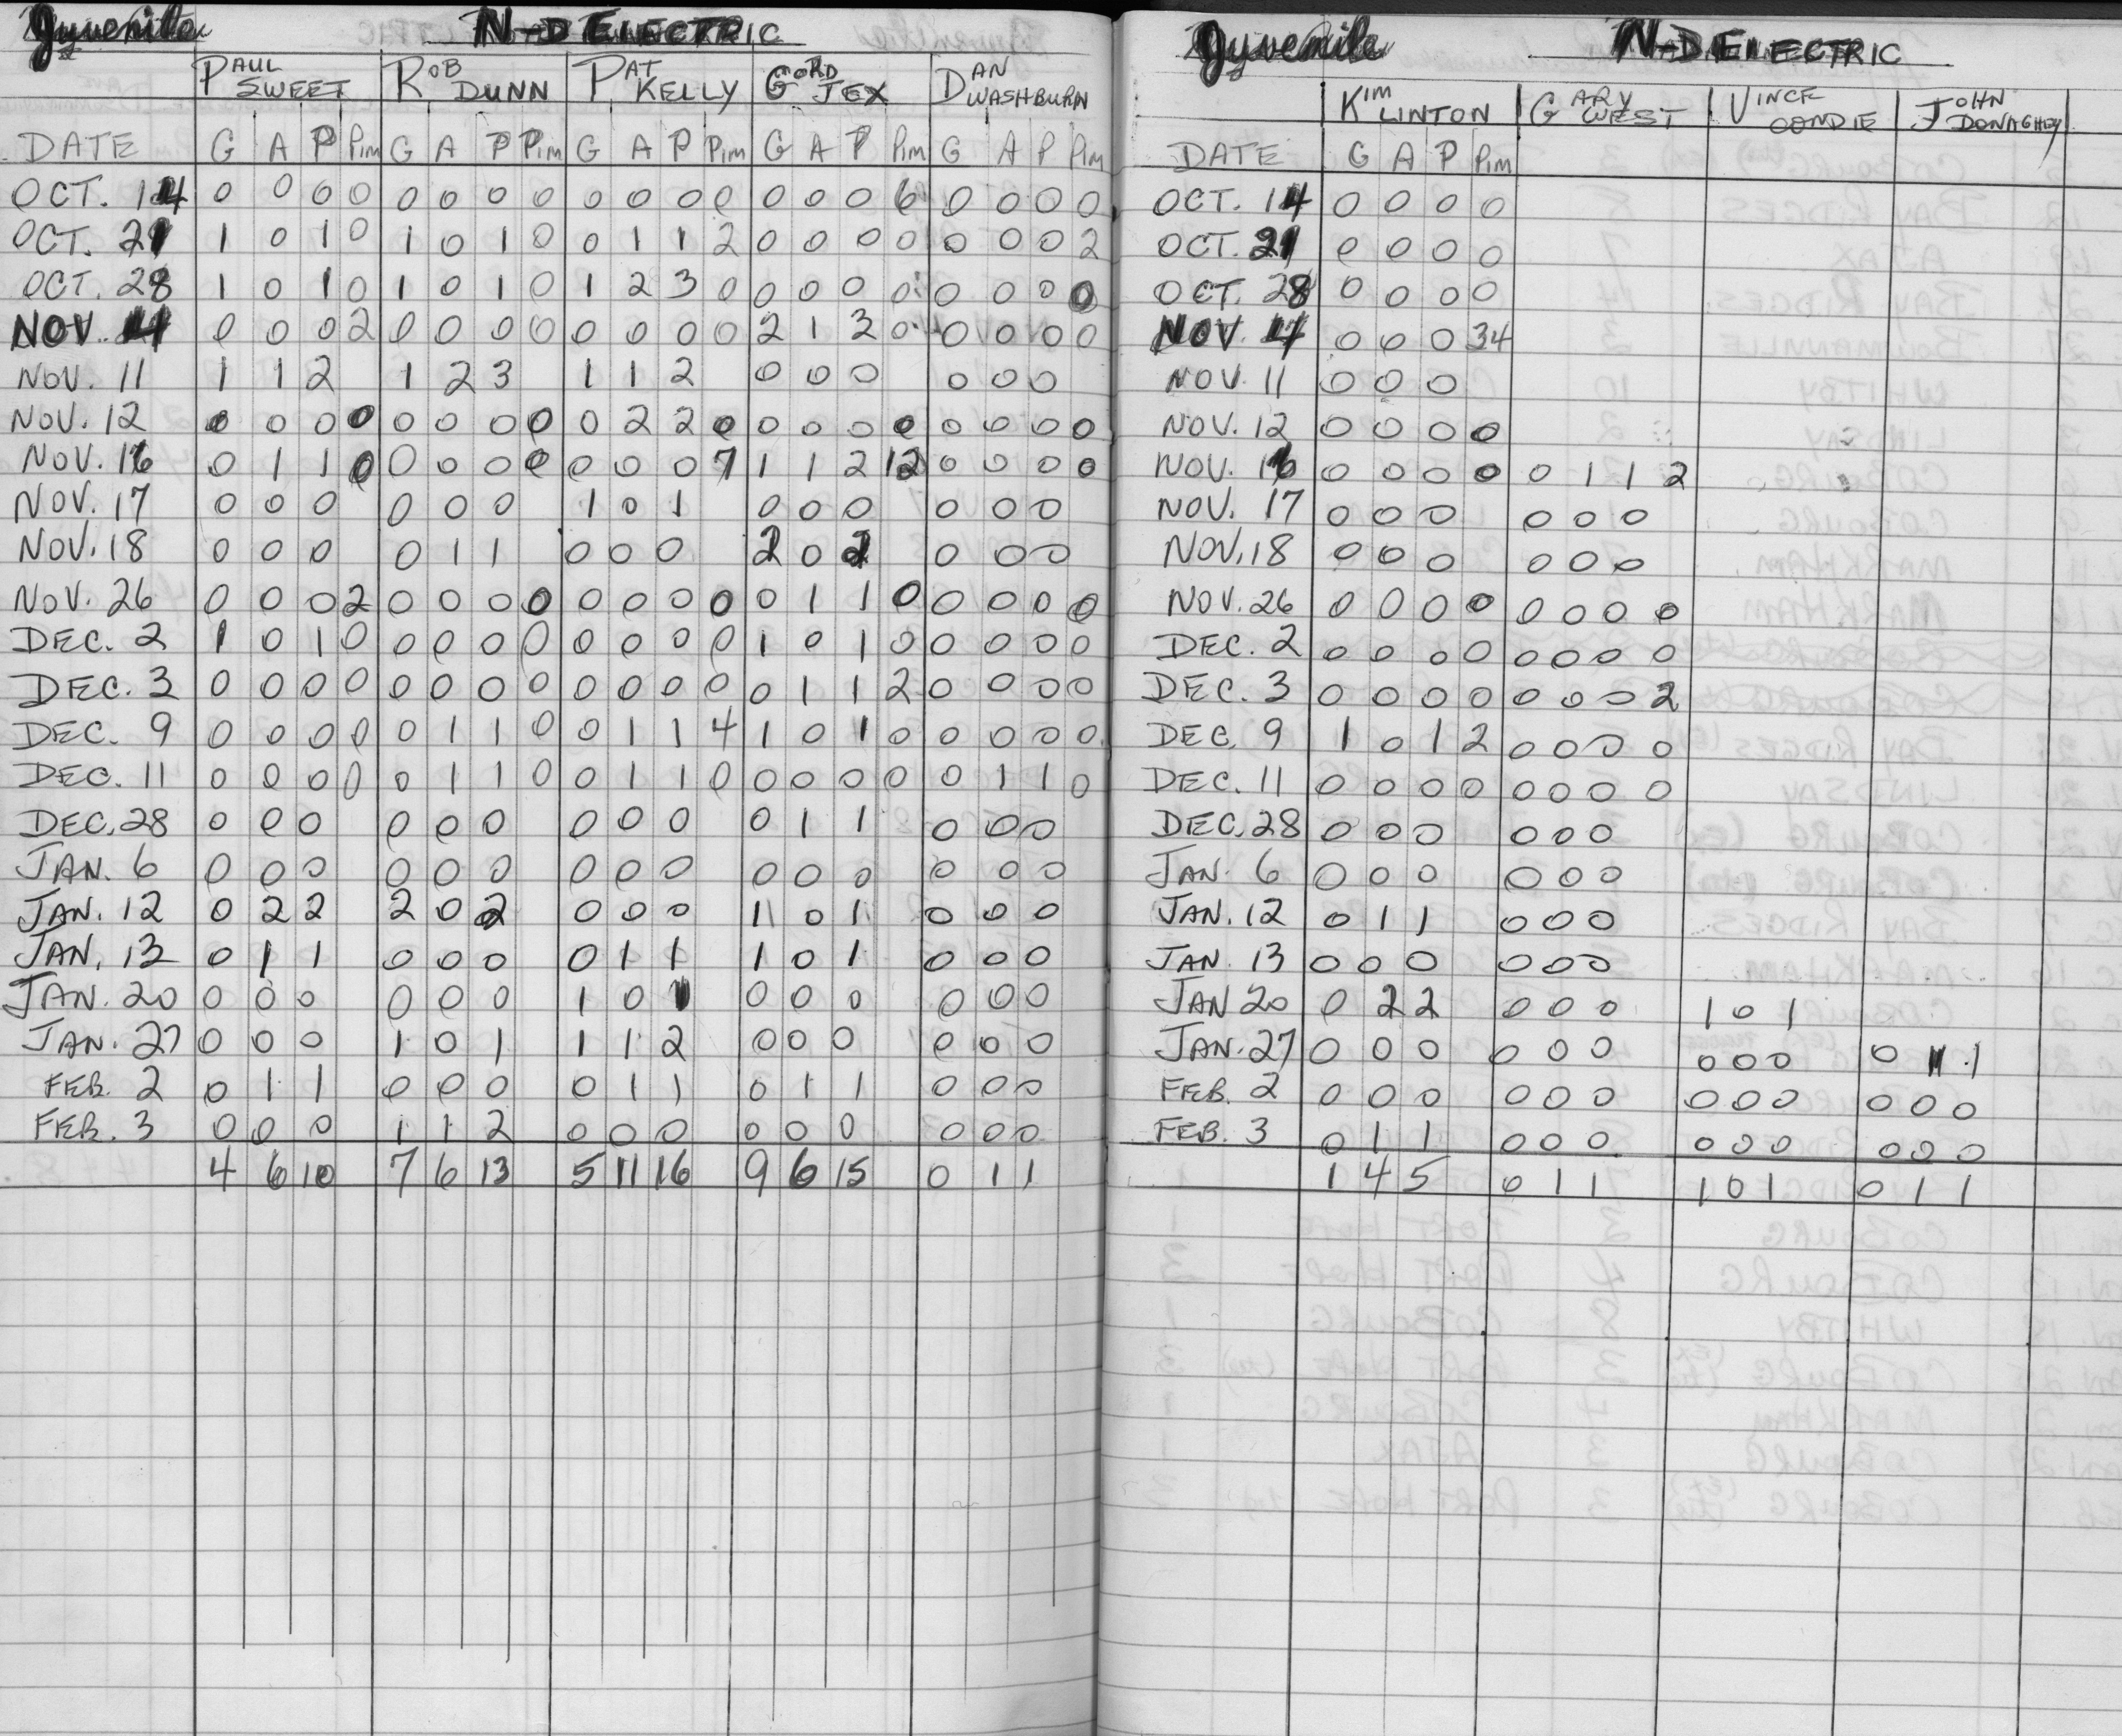 Jyvenile N-D ELECTRIC
PAUL SWEET ROB DUNN PAT KELLY GORD JEX DAN WASHBURN
DATE G A P Pim G A P Pim G A P Pim G A P Pim G A P Pim
OCT. 14 0 0 0 0 0 0 0 0 0 0 0 0 0 0 0 6 0 0 0 0
OCT. 21 1 0 1 0 1 0 1 0 0 1 1 2 0 0 0 0 0 0 0 2
OCT. 28 1 0 1 0 1 0 1 0 1 2 3 0 0 0 0 0 0 0 0 0
NOV. 4 0 0 0 2 0 0 0 0 0 0 0 0 2 1 3 0 0 0 0 0
NOV. 11 1 1 2 1 2 3 1 1 2 0 0 0 0 0 0
NOV. 12 0 0 0 0 0 0 0 0 0 2 2 0 0 0 0 0 0 0 0 0
NOV. 16 0 1 1 0 0 0 0 0 0 0 0 7 1 1 2 12 0 0 0 0
NOV. 17 0 0 0 0 0 0 1 0 1 0 0 0 0 0 0
NOV. 18 0 0 0 0 1 1 0 0 0 2 0 2 0 0 0
NOV. 26 0 0 0 2 0 0 0 0 0 0 0 0 0 1 1 0 0 0 0 0
DEC. 2 1 0 1 0 0 0 0 0 0 0 0 0 1 0 1 0 0 0 0 0
DEC. 3 0 0 0 0 0 0 0 0 0 0 0 0 0 1 1 2 0 0 0 0
DEC. 9 0 0 0 0 0 1 1 0 0 1 1 4 1 0 1 0 0 0 0 0
DEC. 11 0 0 0 0 0 1 1 0 0 1 1 0 0 0 0 0 0 1 1 0
DEC. 28 0 0 0 0 0 0 0 0 0 0 1 1 0 0 0
JAN. 6 0 0 0 0 0 0 0 0 0 0 0 0 0 0 0
JAN. 12 0 2 2 2 0 2 0 0 0 1 0 1 0 0 0
JAN. 13 0 1 1 0 0 0 0 1 1 1 0 1 0 0 0
JAN. 20 0 0 0 0 0 0 1 0 1 0 0 0 0 0 0
JAN. 27 0 0 0 1 0 1 1 1 2 0 0 0 0 0 0
FEB. 2 0 1 1 0 0 0 0 1 1 0 1 1 0 0 0
FEB. 3 0 0 0 1 1 2 0 0 0 0 0 0 0 0 0
4 6 10 7 6 13 5 11 16 9 6 15 0 1 1
Jyvenile N-D ELECTRIC
KIM LINTON GARY WEST VINCE CONDIE JOHN DONAGHEY
DATE G A P Pim
OCT. 14 0 0 0 0
OCT. 21 0 0 0 0
OCT. 28 0 0 0 0
NOV. 4 0 0 0 34
NOV. 11 0 0 0
NOV. 12 0 0 0 0
NOV. 16 0 0 0 0 0 1 1 2
NOV. 17 0 0 0 0 0 0
NOV. 18 0 0 0 0 0 0
NOV. 26 0 0 0 0 0 0 0 0
DEC. 2 0 0 0 0 0 0 0 0
DEC. 3 0 0 0 0 0 0 0 2
DEC. 9 1 0 1 2 0 0 0 0
DEC. 11 0 0 0 0 0 0 0 0
DEC. 28 0 0 0 0 0 0
JAN. 6 0 0 0 0 0 0
JAN. 12 0 1 1 0 0 0
JAN. 13 0 0 0 0 0 0
JAN 20 0 2 2 0 0 0 1 0 1
JAN. 27 0 0 0 0 0 0 0 0 0 0 1 1
FEB. 2 0 0 0 0 0 0 0 0 0 0 0 0
FEB. 3 0 1 1 0 0 0 0 0 0 0 0 0
1 4 5 0 1 1 1 0 1 0 1 1